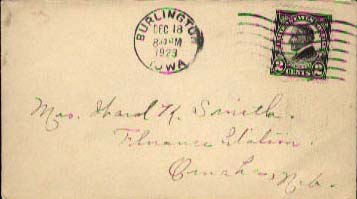 BURLINGTON
DEC 18
1923
IOWA
2 CENTS 2
Mrs. Ward K. Smith.
Florence Station
Omaha, Neb.